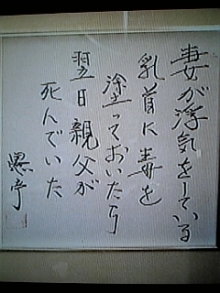 妻が浮気をしている
乳首に毒を
塗っておいたら
翌日親父が
死んでいた